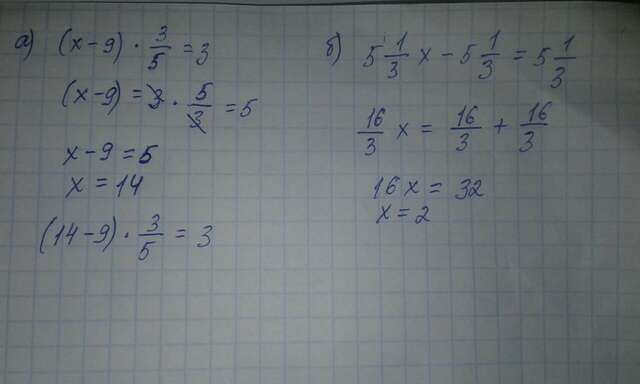 а) (x-9) · 3/5 = 3
(x-9) = 3 · 5/3 = 5
x-9 = 5
x = 14
(14-9) · 3/5 = 3
б) 5 1/3 x - 5 1/3 = 5 1/3
16/3 x = 16/3 + 16/3
16x = 32
x = 2